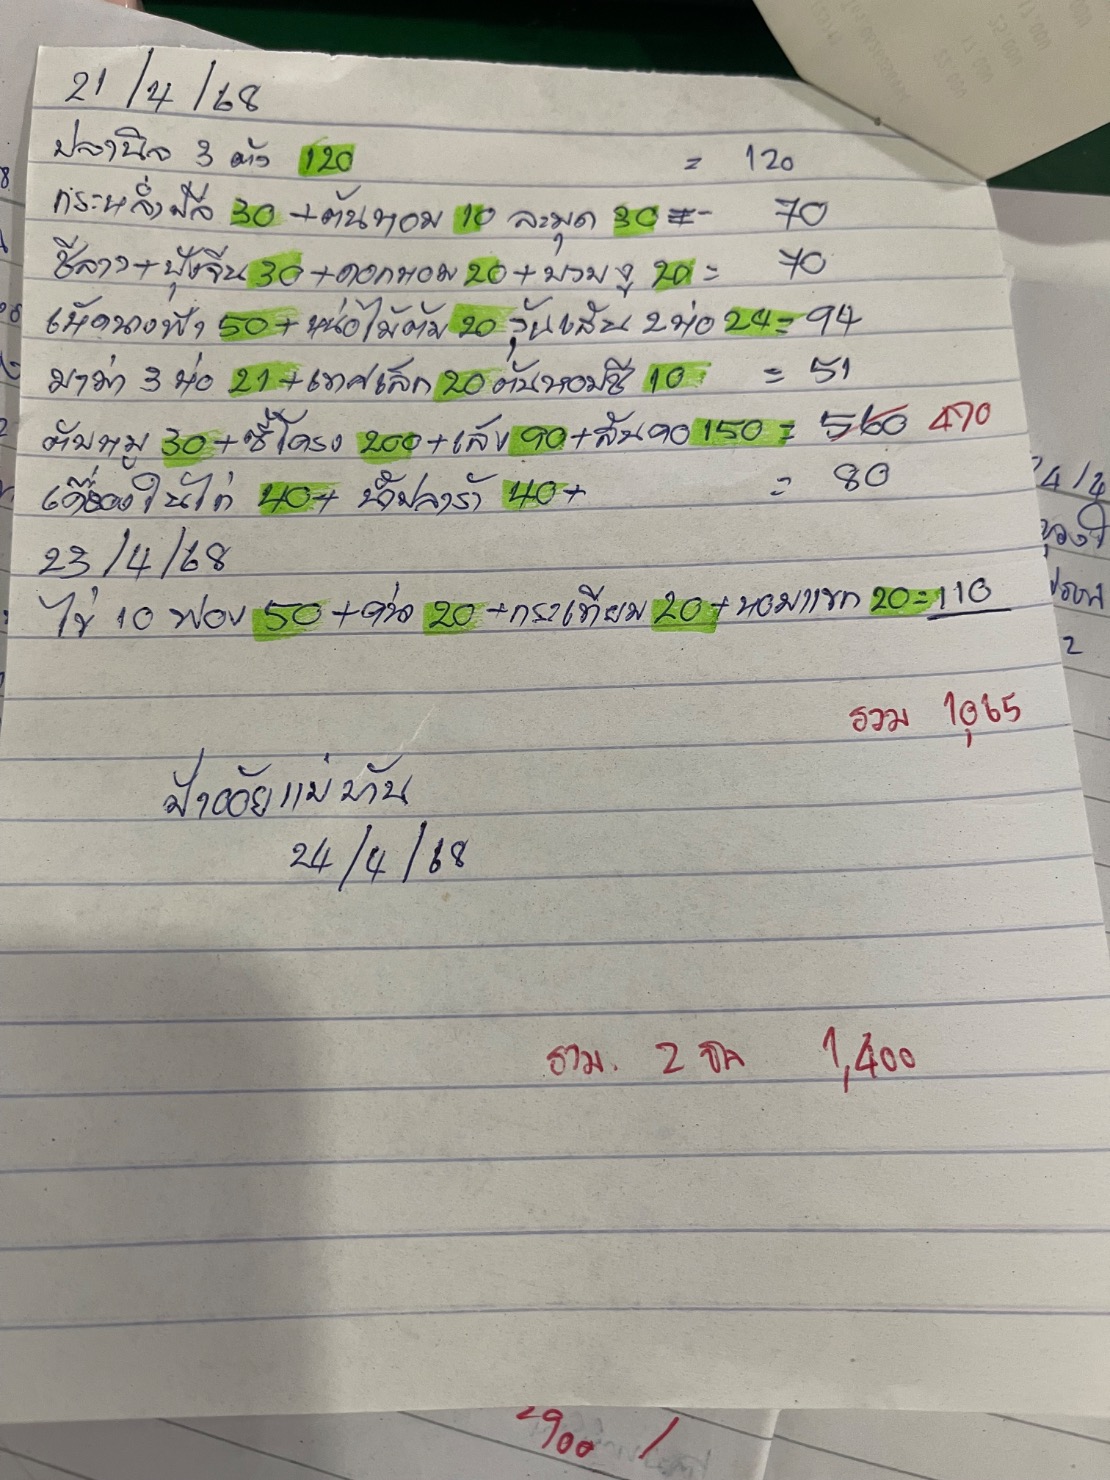 21/4/68
ปลานิล 3 ตัว 120 = 120
กระหล่ำปลี 30 + ต้นหอม 10 ละมุด 30 = 70
ชีลาว + ปุ้งจีน 30 + ดอกหอม 20 + บวบงู 20 = 70
เห็ดนางฟ้า 50 + หน่อไม้ต้ม 20 วุ้นเส้น 2 ห่อ 24 = 94
มาม่า 3 ห่อ 21 + เทศเล็ก 20 ต้นหอมชี 10 = 51
ตับหมู 30 + ซี่โครง 200 + เล้ง 90 + สันคอ 150 = 560 470
เครื่องในไก่ 40 + น้ำปลาร้า 40 + = 80
23/4/68
ไข่ 10 ฟอง 50 + ข่า 20 + กระเทียม 20 + หอมแขก 20 = 110
รวม 1,065
ป้าออัยแม่บ้าน
24/4/68
รวม. 2 บิล 1,400
2900 /